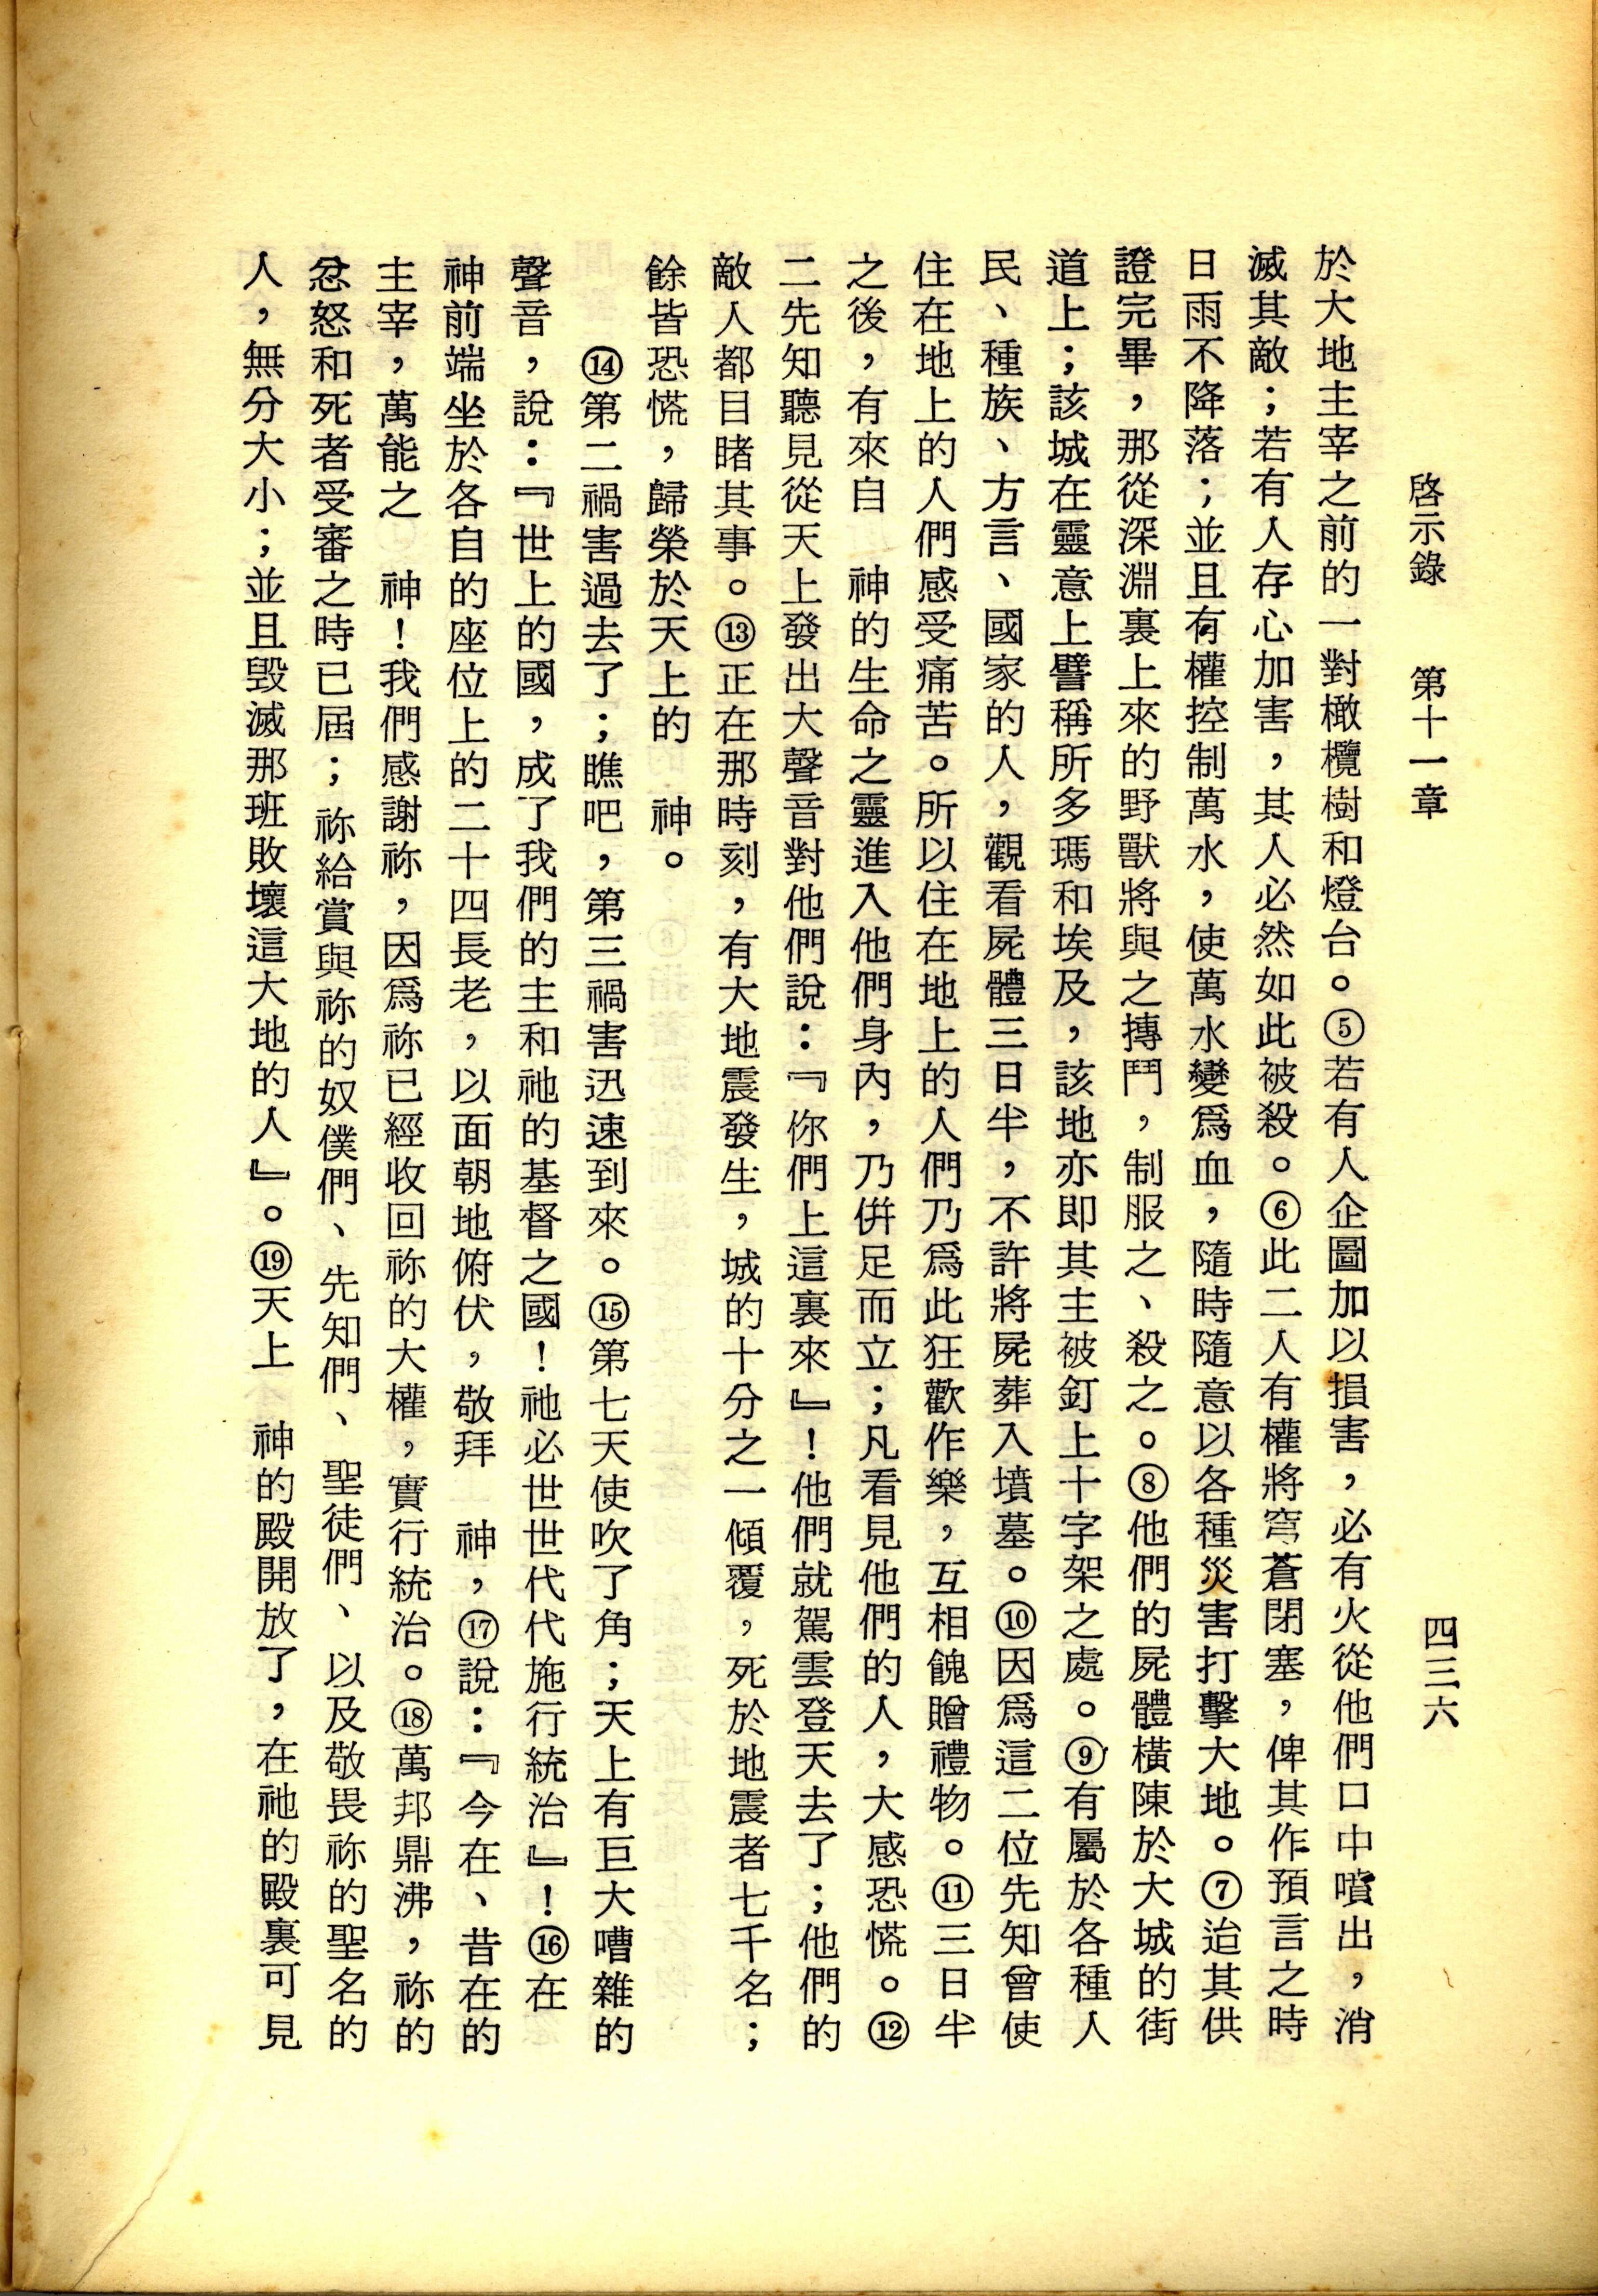 啓示錄　第十一章　四三六
於大地主宰之前的一對橄欖樹和燈台。⑤若有人企圖加以損害，必有火從他們口中噴出，消
滅其敵；若有人存心加害，其人必然如此被殺。⑥此二人有權將穹蒼閉塞，俾其作預言之時
日雨不降落；並且有權控制萬水，使萬水變爲血，隨時隨意以各種災害打擊大地。⑦迨其供
證完畢，那從深淵裏上來的野獸將與之摶鬥，制服之、殺之。⑧他們的屍體橫陳於大城的街
道上；該城在靈意上譬稱所多瑪和埃及，該地亦即其主被釘上十字架之處。⑨有屬於各種人
民、種族、方言、國家的人，觀看屍體三日半，不許將屍葬入墳墓。⑩因爲這二位先知曾使
住在地上的人們感受痛苦。所以住在地上的人們乃爲此狂歡作樂，互相餽贈禮物。⑪三日半
之後，有來自　神的生命之靈進入他們身內，乃併足而立；凡看見他們的人，大感恐慌。⑫
二先知聽見從天上發出大聲音對他們說：『你們上這裏來』！他們就駕雲登天去了；他們的
敵人都目睹其事。⑬正在那時刻，有大地震發生，城的十分之一傾覆，死於地震者七千名；
餘皆恐慌，歸榮於天上的　神。
⑭第二禍害過去了；瞧吧，第三禍害迅速到來。⑮第七天使吹了角；天上有巨大嘈雜的
聲音，說：『世上的國，成了我們的主和祂的基督之國！祂必世世代代施行統治』！⑯在
神前端坐於各自的座位上的二十四長老，以面朝地俯伏，敬拜　神，⑰說：『今在、昔在的
主宰，萬能之　神！我們感謝祢，因爲祢已經收回祢的大權，實行統治。⑱萬邦鼎沸，祢的
忿怒和死者受審之時已屆；祢給賞與祢的奴僕們、先知們、聖徒們、以及敬畏祢的聖名的
人，無分大小；並且毀滅那班敗壞這大地的人』。⑲天上　神的殿開放了，在祂的殿裏可見